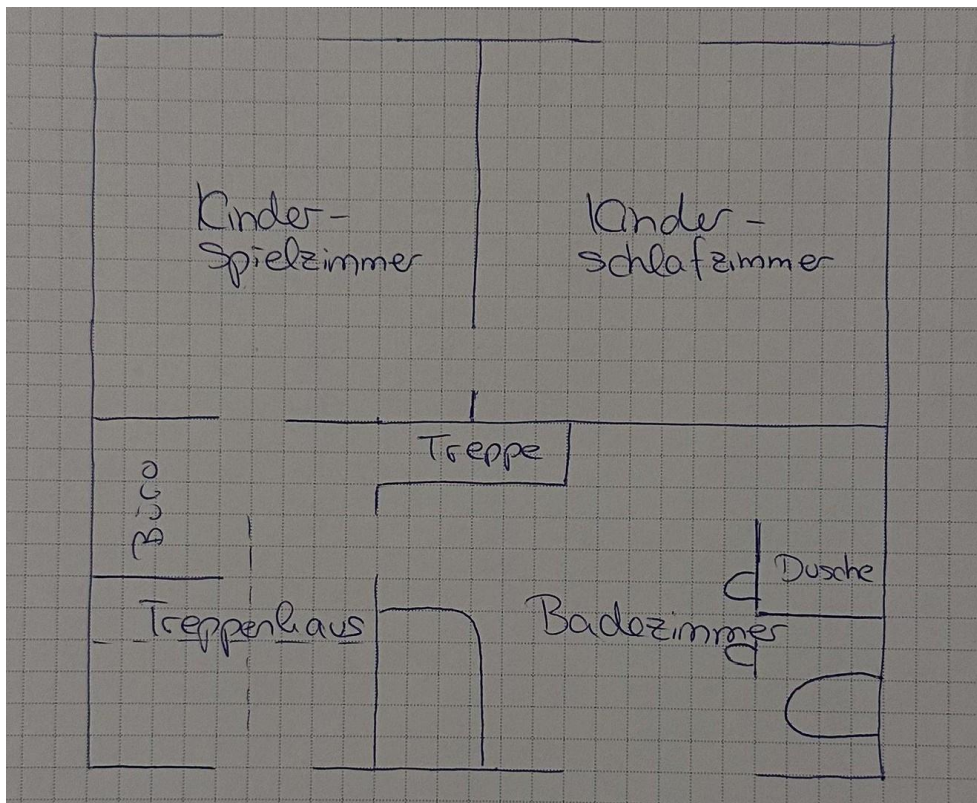 Kinder-
Spielzimmer
Kinder-
schlafzimmer
Treppe
Büro
Dusche
Treppenhaus
Badezimmer